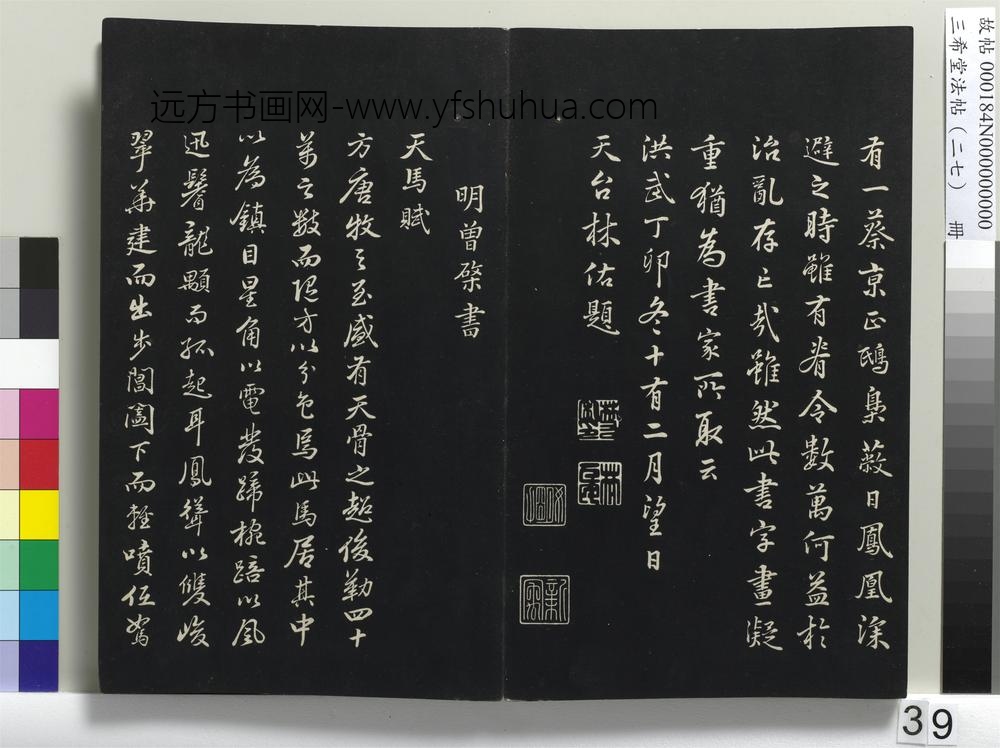 远方书画网-www.yfshuhua.com
故帖 000184N000000000
三希堂法帖（二七） 冊
有一蔡京正鴟梟蔽日鳳凰深
避之時雖有眷令數萬何益於
治亂存亡哉雖然此書字畫凝
重猶為書家所取云
洪武丁卯冬十有二月望日
天台林佑題
明曾棨書
天馬賦
方唐牧之至盛有天骨之超俊勒四十
萬之數而隨方以分色焉此馬居其中
以為鎮目星角以電發蹄椀踣以風
迅鬐龍顒而孤起耳鳳聳以雙峻
翠華建而出步閶闔下而輕噴低駑
39